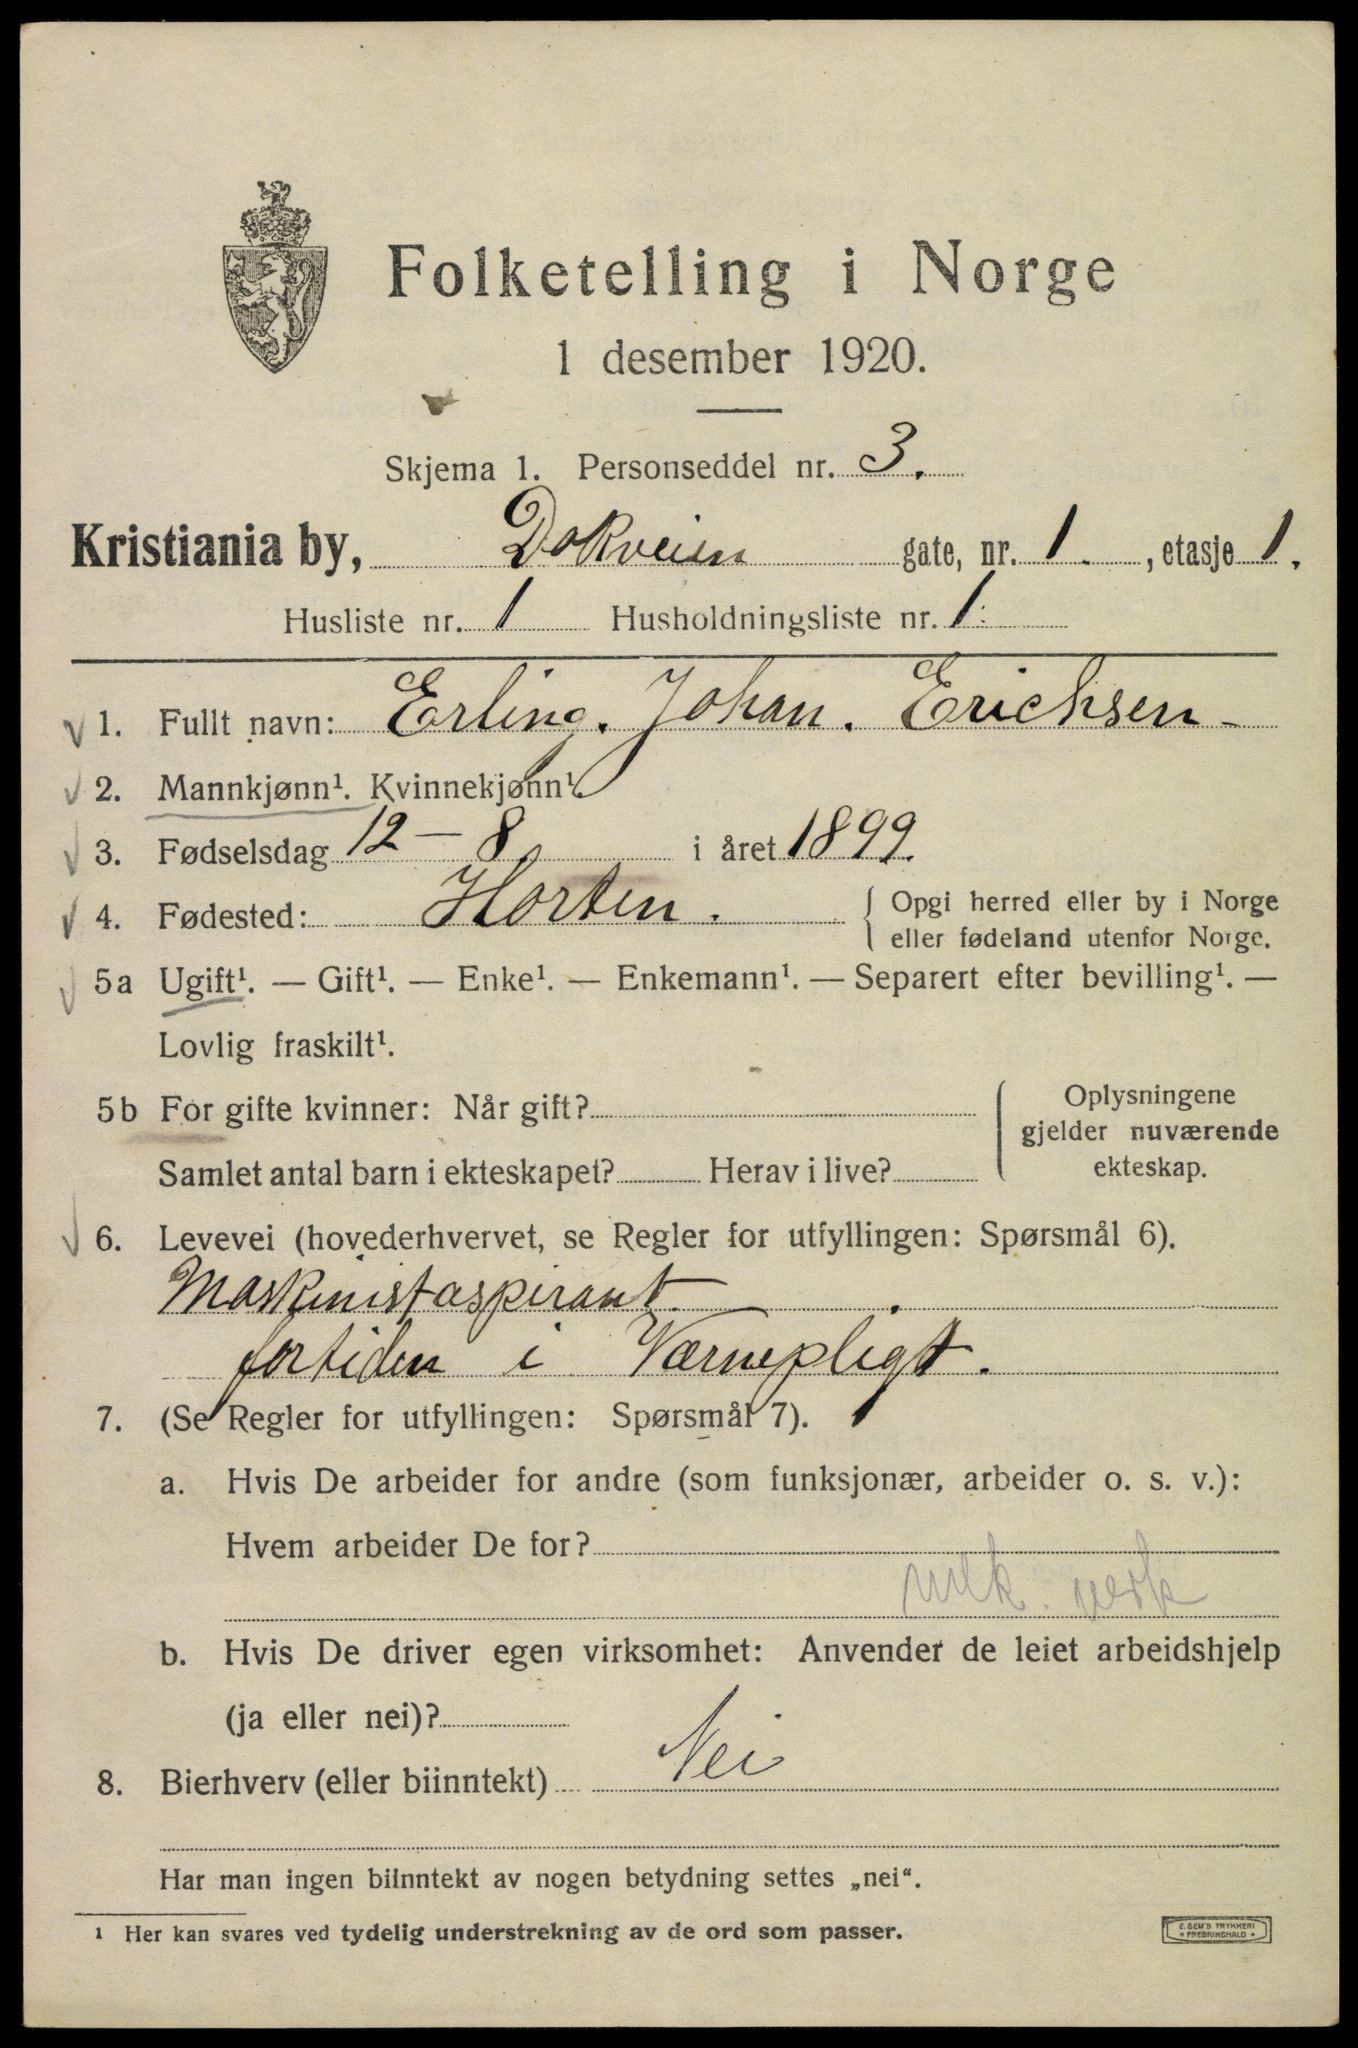 Folketelling i Norge
1 desember 1920.
Skjema 1. Personseddel nr. 3.
Kristiania by, Dokveien gate, nr. 1. , etasje 1.
Husliste nr. 1 Husholdningsliste nr. 1.
1. Fullt navn: Erling. Johan. Erichsen
2. Mannkjønn¹. Kvinnekjønn¹.
3. Fødselsdag 12 – 8 i året 1899.
4. Fødested: Horten. { Opgi herred eller by i Norge
eller fødeland utenfor Norge.
5a Ugift¹. — Gift¹. — Enke¹. — Enkemann¹. — Separert efter bevilling¹. —
Lovlig fraskilt¹.
5b For gifte kvinner: Når gift? { Oplysningene
gjelder nuværende
Samlet antal barn i ekteskapet? Herav i live? ekteskap.
6. Levevei (hovederhvervet, se Regler for utfyllingen: Spørsmål 6).
Maskinistaspirant.
fortiden i Værnepligt.
7. (Se Regler for utfyllingen: Spørsmål 7).
a. Hvis De arbeider for andre (som funksjonær, arbeider o. s. v.):
Hvem arbeider De for?
mek. verk
b. Hvis De driver egen virksomhet: Anvender de leiet arbeidshjelp
(ja eller nei)?
8. Bierhverv (eller biinntekt) Nei
Har man ingen biinntekt av nogen betydning settes „nei“.
¹ Her kan svares ved tydelig understrekning av de ord som passer.
E. SEM'S TRYKKERI
FREDRIKSHALD